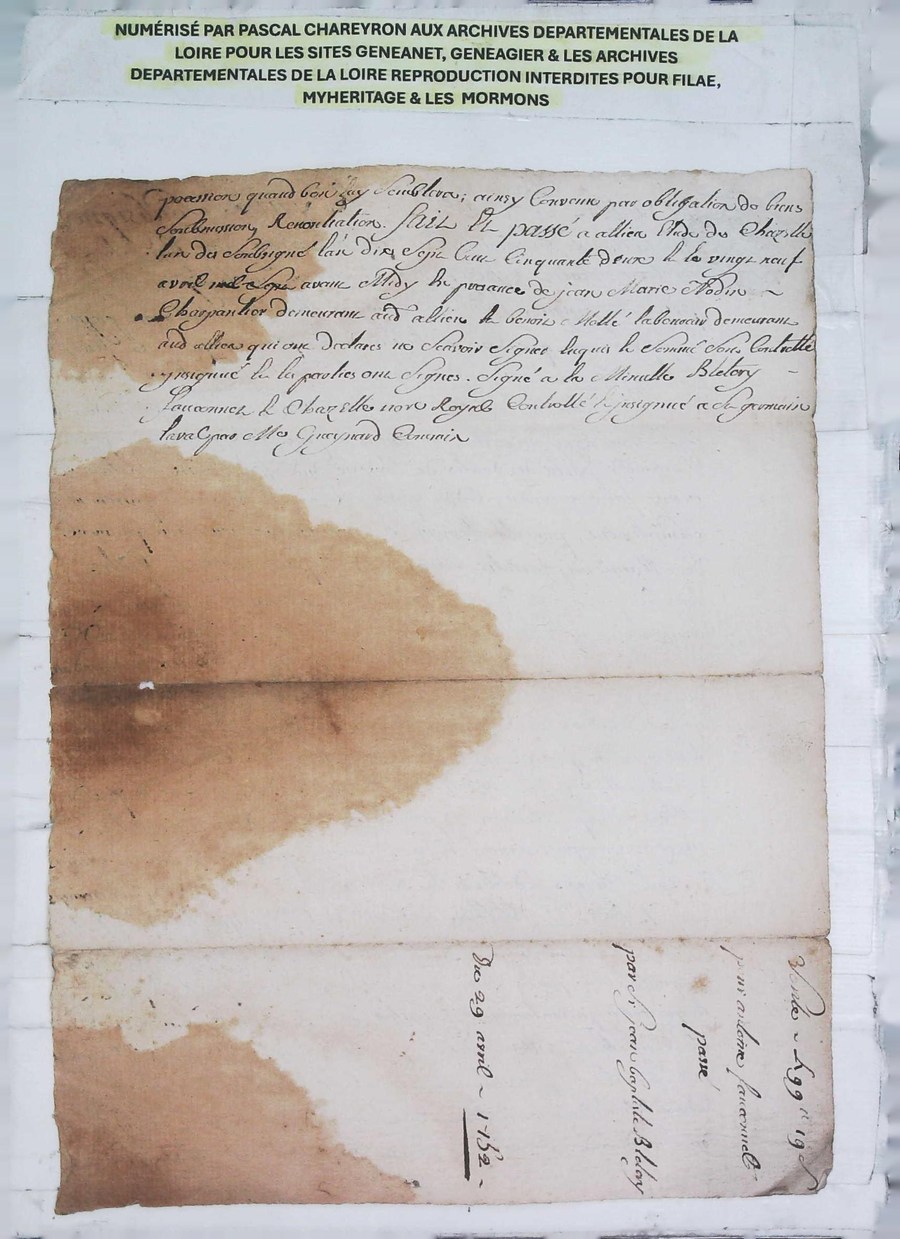 NUMÉRISÉ PAR PASCAL CHAREYRON AUX ARCHIVES DEPARTEMENTALES DE LA
LOIRE POUR LES SITES GENEANET, GENEAGIER & LES ARCHIVES
DEPARTEMENTALES DE LA LOIRE REPRODUCTION INTERDITES POUR FILAE,
MYHERITAGE & LES MORMONS
quand bon luy Semblera; ainsy Convenu par obligation de biens
Soubmission, Renontiation. fait Et passé a allieu Etude de Chazelle
l'un des Soubsigné l'an dix Sept Cent Cinquante deux & le vingt neuf
avril avant Midy En presance de jean Marie
Charpantier demeurant aud allieu & benoit laboureur demeurant
aud allieu qui ont declarés ne Scavoir Signer Enquis & Sommé Sera Controllé
ynsignué & les parties ont Signes. Signé a la Minutte Bleterÿ
fauconnet & Chazelle nore Royal Controllé & ynsignué a St germain
laval par Me Commis
Vente
par antoine fauconnet
passé
par Sr Jean baptiste Bletery
Du 29 avril ~ 1752 ~